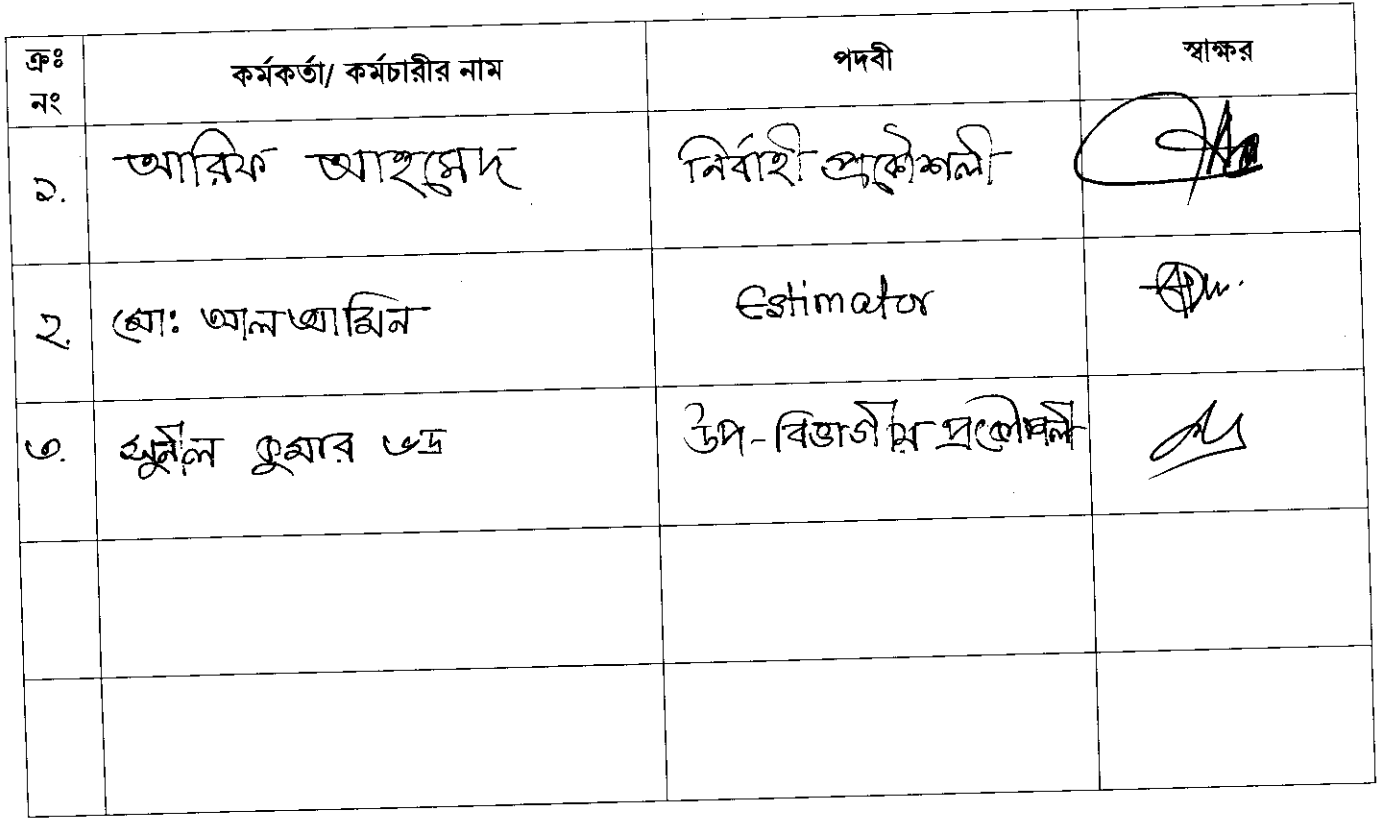 ক্রঃ নং কর্মকর্তা/ কর্মচারীর নাম পদবী স্বাক্ষর
১. আরিফ আহমেদ নির্বাহী প্রকৌশলী
২. মো: আল আমিন Estimator
৩. সুনীল কুমার ভদ্র উপ-বিভাগীয় প্রকৌশলী